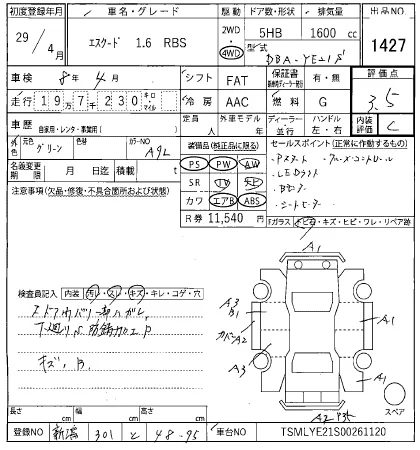 初度登録年月
29/4月
車名・グレード
エスクード 1.6 RBS
駆動
2WD・4WD
ドア数・形状
5HB
排気量
1600 cc
型式
DBA-YE21S
出品NO
1427
車検 8年4月
シフト FAT
保証書 有・無
評価点
3.5
走行 197,230 キロ・マイル
冷房 AAC
燃料 G
定員 人
外車モデル 年
ディーラー・並行
ハンドル 左・右
内装評価 C
車歴 自家用・レンタ・事業用( )
外色 元色 グリーン 色替 カラーNO A9L
装備品(純正品に限る)
PS PW AW
SR TV ナビ
カワ エアB ABS
R券 11,540 円
セールスポイント(正常に作動するもの)
名義変更期限 月 日迄
積載 t
注意事項(欠品・修復・不具合箇所および状態)
Fガラス トビ石・キズ・ヒビ・ワレ・リペア跡
検査員記入 内装 汚レ・スレ・キズ・キレ・コゲ・穴
下廻りS 防錆加工P
キズ、B.
A1
A3
B1
カバーA2
A3
A1
A1
A2
スペア
長さ cm 幅 cm 高さ cm
登録NO 新潟 301 と 48-95
車台NO TSMLYE21S00261120